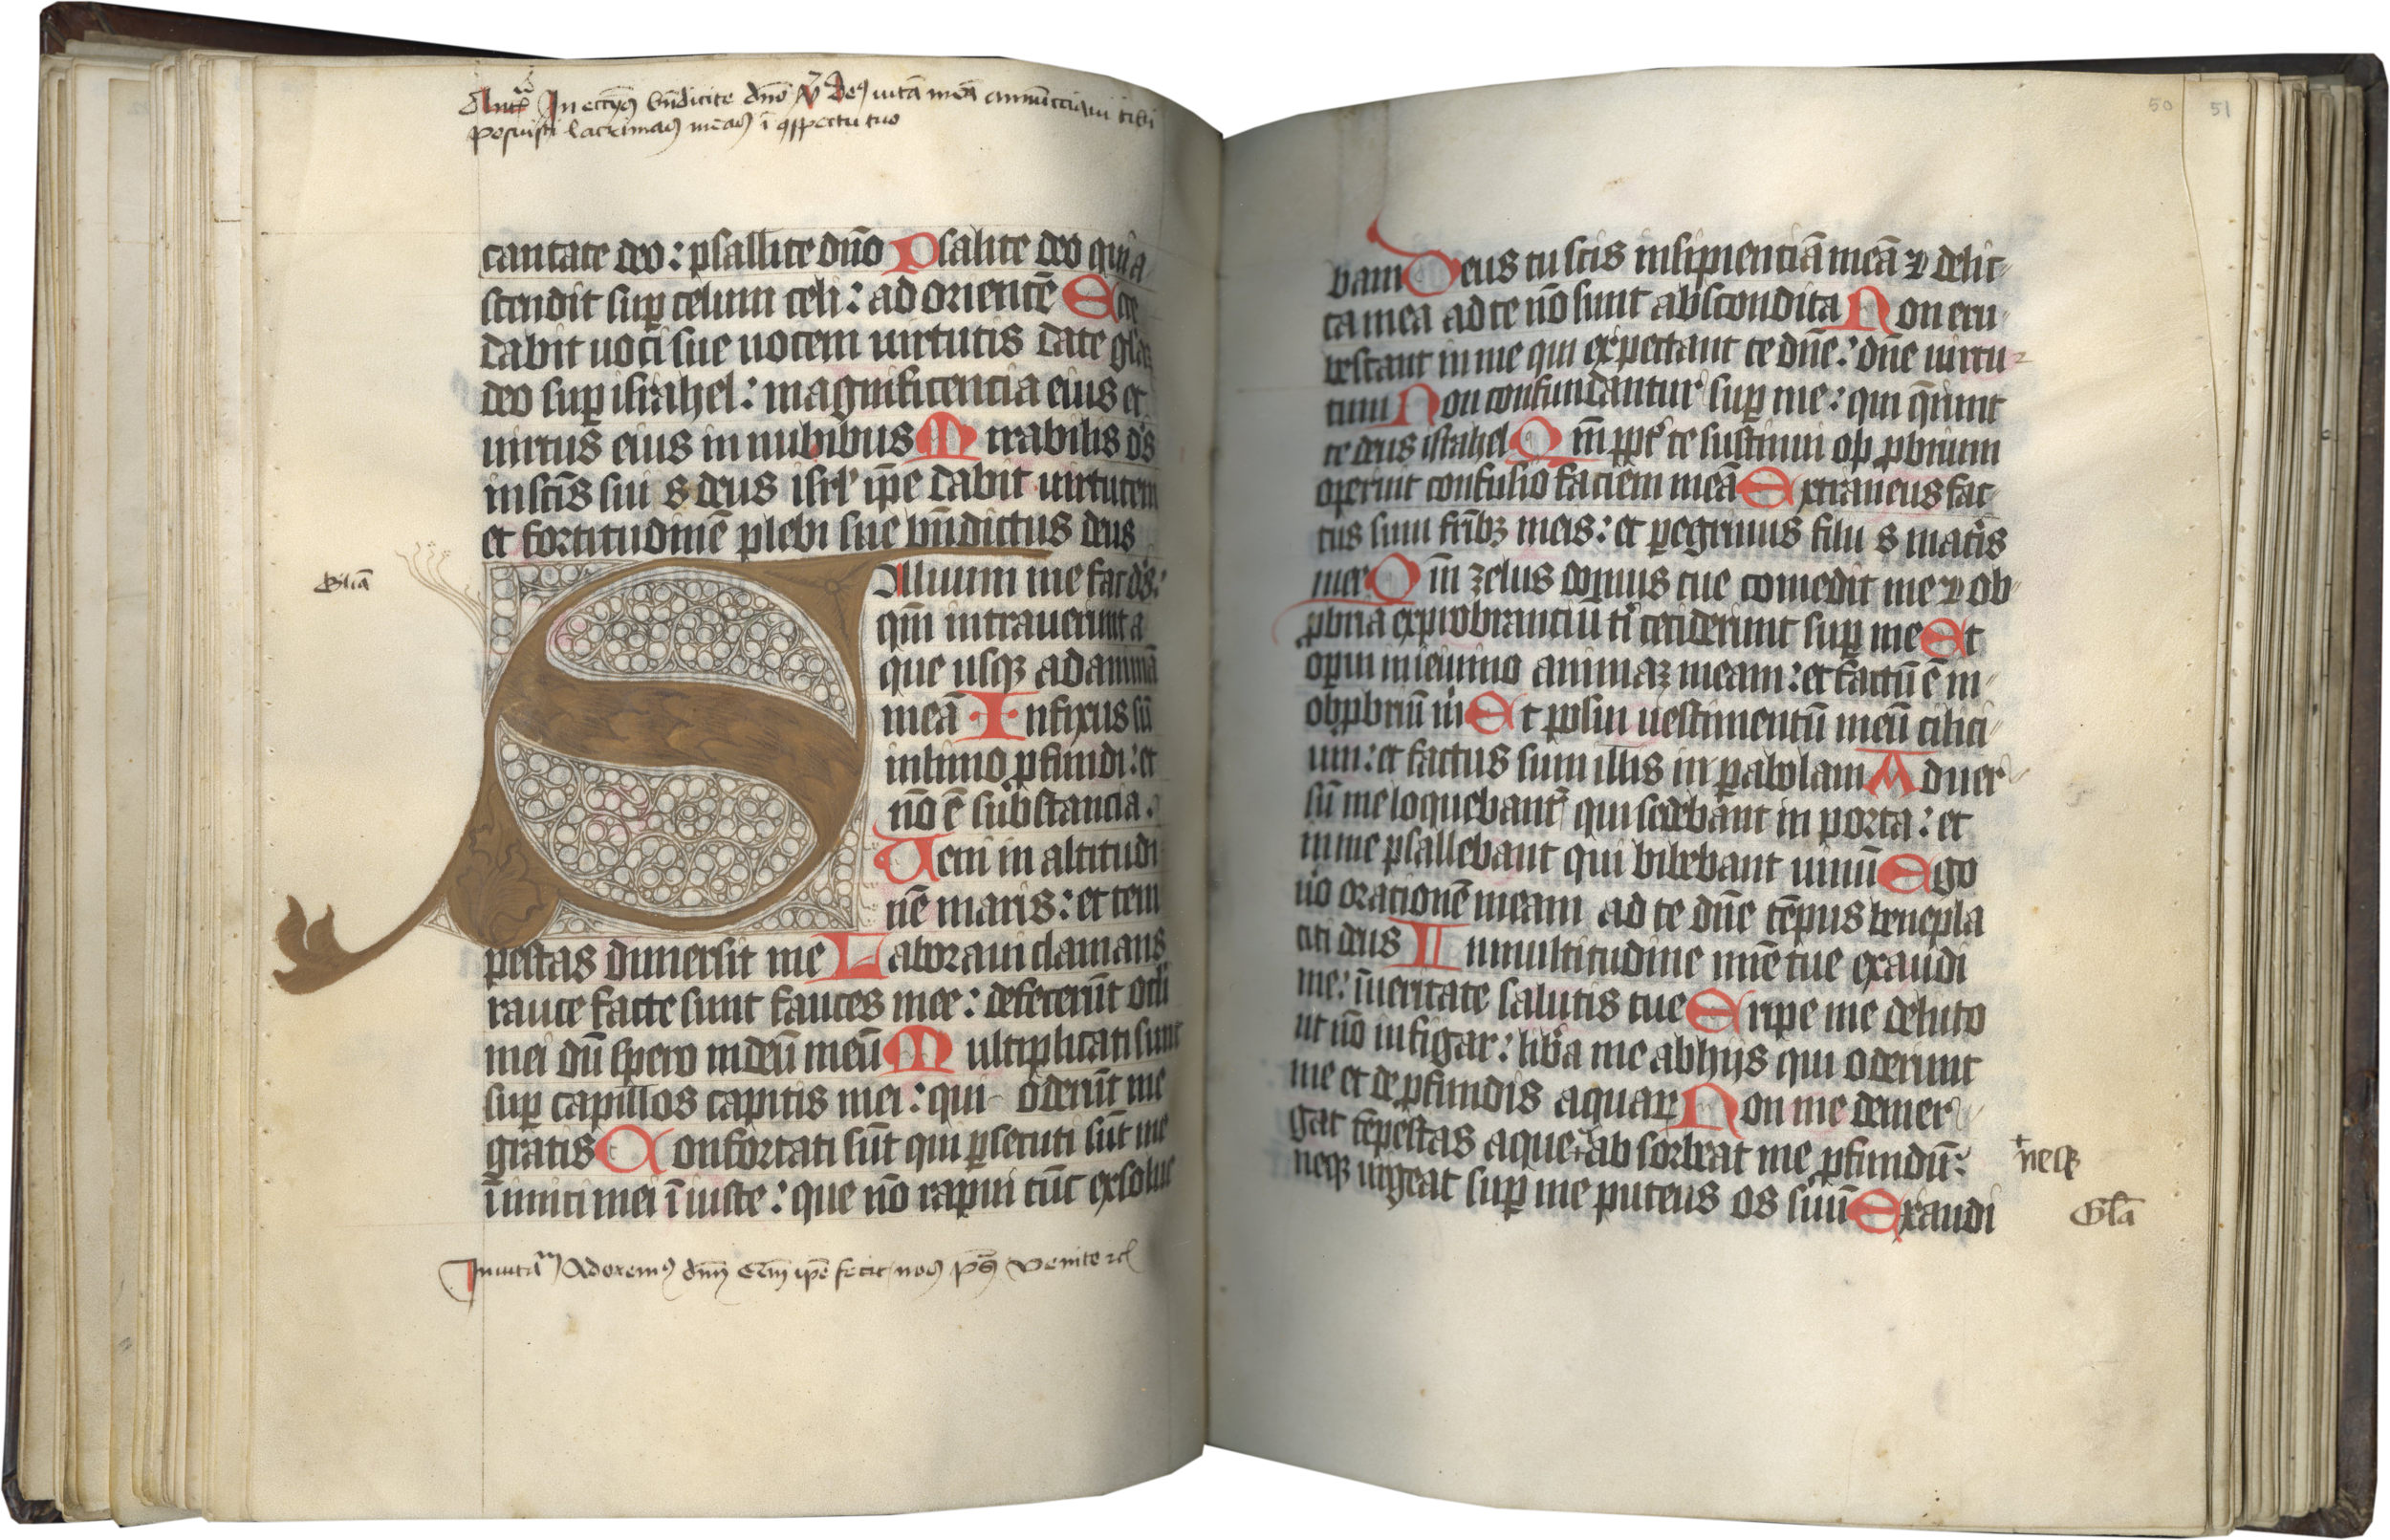 Antͣ In ecc̄ijs bn̄dicite dn̄o v̄ Deꝰ uitā meā annūcciaui tibi
posuisti lacrimas meas ī ꝯspectu tuo
cantate deo: psallite dn̄o Psalite deo qui a
scendit suꝑ celum celi: ad orientē Ecce
dabit uoci sue uocem uirtutis date glāz
deo suꝑ israhel: magnificencia eius et
uirtus eius in nubibus Mirabilis d̄s
in sc̄is sui s deus isrl' ip̄e dabit uirtutem
et fortitudinē plebi sue bn̄dictus deus
Gliā
Saluum me fac d̄s:
qm̄ intrauerunt a
que usqꝫ ad animā
meā Infixus sū
in limo ꝓfundi: et
nō ē substancia.
Ueni in altitudi
nē maris: et tem
pestas dimersit me Laboraui clamans
rauce facte sunt fauces mee: defecerūt oculi
mei dū spero in deū meū Multiplicati sunt
suꝑ capillos capitis mei: qui oderūt me
gratis Confortati sūt qui ꝑsecuti sūt me
īimici mei īiuste: que nō rapui tūc exsolue
Inuitaᵐ Adoremꝰ dn̄m q̄m ip̄e fecit nos ps̄ Venite ꝛcͭ
50 51
bam Deus tu scis insipienciā meā ⁊ delic
ta mea a te nō sunt abscondita Non eru
bescant in me qui expectant te dn̄e: dn̄e uirtu
tum Non confundantur suꝑ me: qui q̄runt
te deus israhel Qm̄ ꝓpt' te sustinui opꝓbrium
operuit confusio faciem meā Extraneus fac
tus sum fr̄ibꝫ meis: et ꝑegrinus filii s matris
mee Qm̄ zelus domus tue comedit me ⁊ ob
ꝓbria exprobranciū ti' ceciderunt suꝑ me Et
operui in ieiunio animaꝫ meam: et factū ē in
obꝓbriū m' Et posui uestimentū meū cilici
um: et factus sum illis in ꝑabolam Aduer
sū me loquebant' qui sedebant in porta: et
in me psallebant qui bibebant uinū Ego
u'o orationē meam ad te dn̄e tēpus benepla
citi deus In multitudine mīe tue exaudi
me: ī ueritate salutis tue Eripe me de luto
ut nō infigar: lib'a me ab hijs qui oderunt
me et de ꝓfundis aquaꝝ Non me demer
gat tēpestas aque + ab sorbeat me ꝓfundū:
+ neqꝫ
neqꝫ urgeat suꝑ me puteus os suū Exaudi
Glā